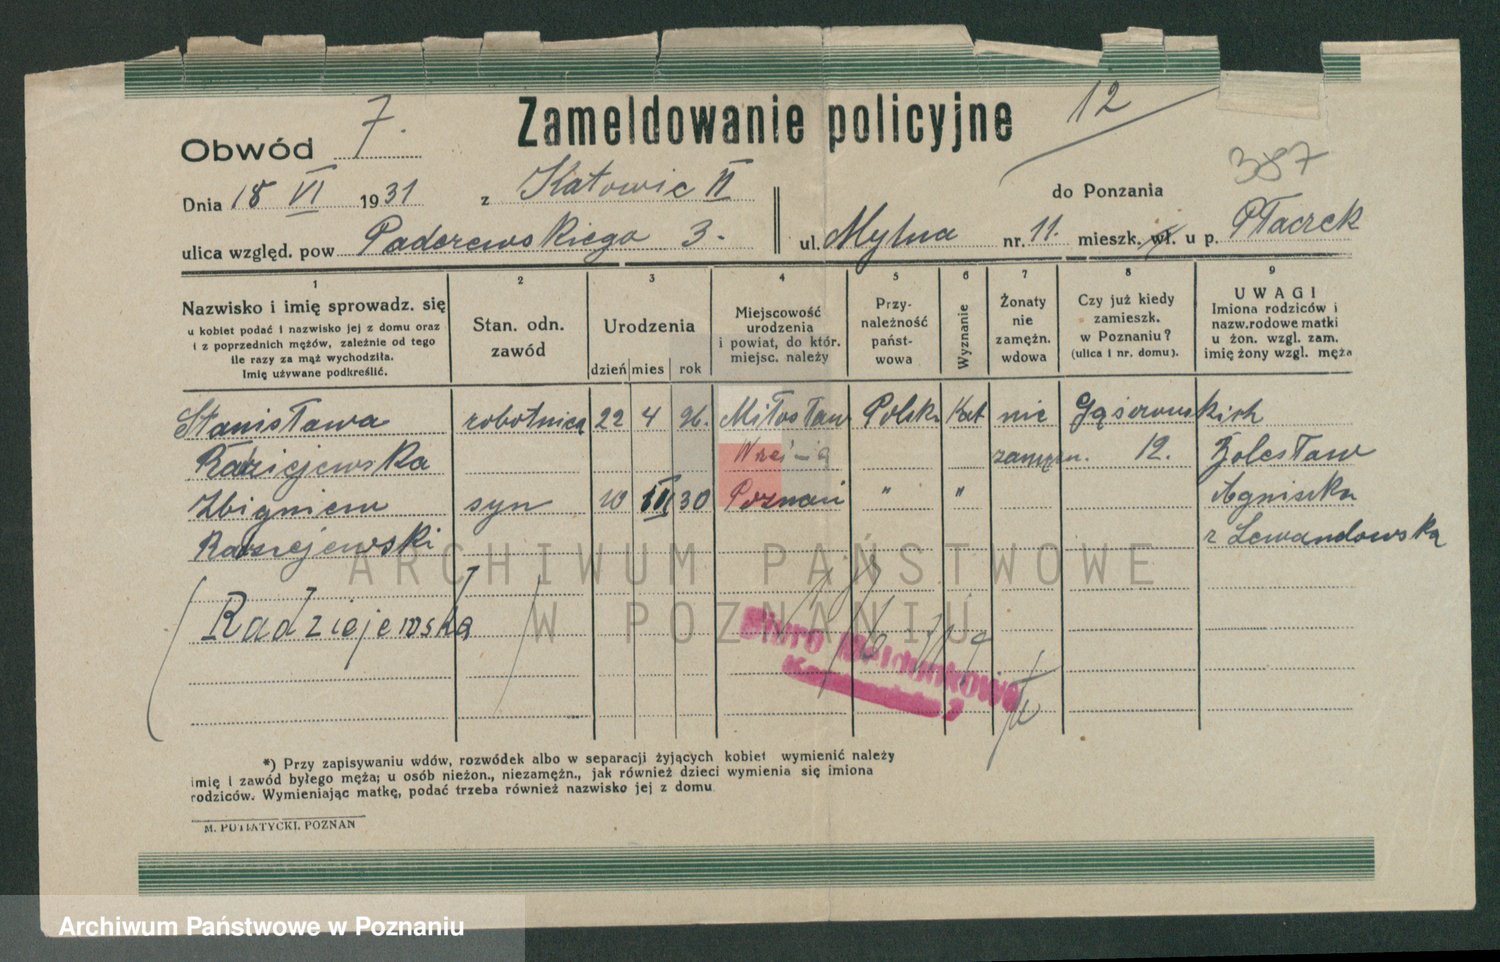 12
Zameldowanie policyjne
Obwód 7.
387
Dnia 18 VI 1931 z Katowic II do Ponzania
ulica względ. pow Paderewskiego 3. ul. Mylna nr. 11. mieszk. wł. u p. Ptaczek
1 2 3 4 5 6 7 8 9
Nazwisko i imię sprowadz. się
u kobiet podać i nazwisko jej z domu oraz
i z poprzednich mężów, zależnie od tego
ile razy za mąż wychodziła.
Imię używane podkreślić.
Stan. odn.
zawód
Urodzenia
dzień mies rok
Miejscowość
urodzenia
i powiat, do któr.
miejsc. należy
Przy-
należność
państ-
wowa
Wyznanie
Żonaty
nie
zamężn.
wdowa
Czy już kiedy
zamieszk.
w Poznaniu?
(ulica i nr. domu).
UWAGI
Imiona rodziców i
nazw.rodowe matki
u żon. wzgl. zam.
imię żony wzgl. męża
Stanisława robotnica 22 4 96. Miłosław Polsk Kat nie Gąsiorowskich
Radziejewska zamężn. 12. Bolesław
Zbigniew syn 10 III 30 Poznań " " Agnieszka
Radziejewski z Lewandowską
Radziejewska
ARCHIWUM PAŃSTWOWE
W POZNANIU
Biuro Meldunkowe
*) Przy zapisywaniu wdów, rozwódek albo w separacji żyjących kobiet wymienić należy
imię i zawód byłego męża; u osób nieżon., niezamężn., jak również dzieci wymienia się imiona
rodziców. Wymieniając matkę, podać trzeba również nazwisko jej z domu
M. PUTIATYCKI, POZNAN
Archiwum Państwowe w Poznaniu